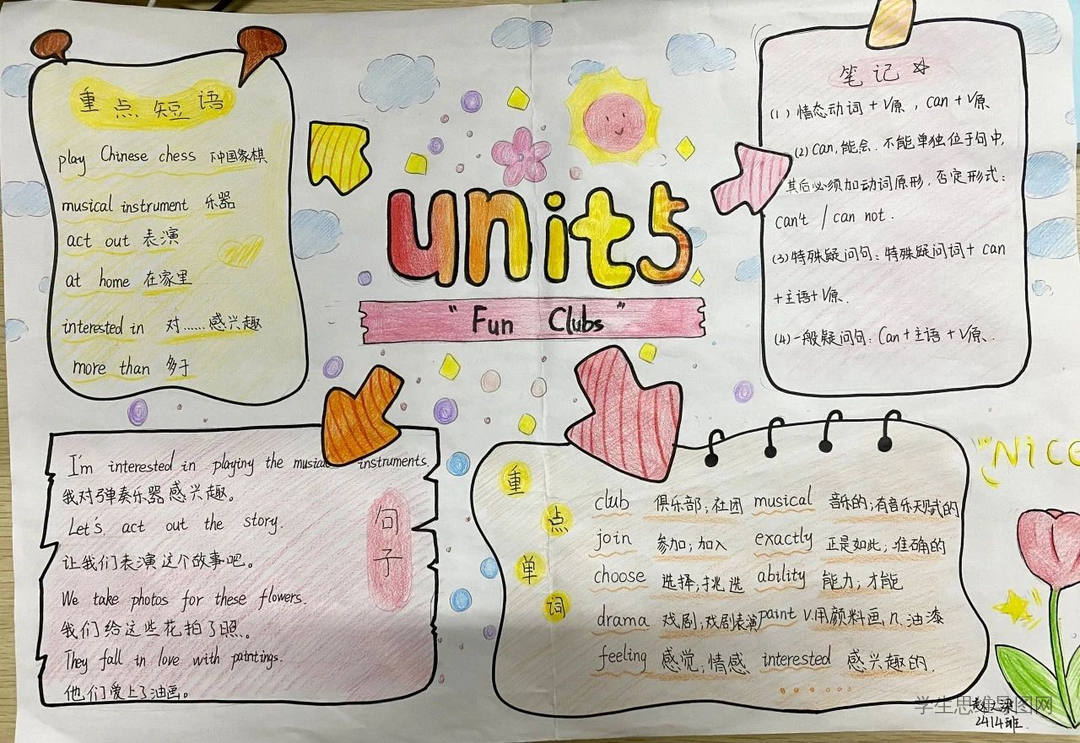 unit5
"Fun Clubs"
重点短语
play Chinese chess 下中国象棋
musical instrument 乐器
act out 表演
at home 在家里
interested in 对……感兴趣
more than 多于
笔记
(1) 情态动词+V原，can+V原
(2) can,能,会.不能单独位于句中,
其后必须加动词原形.否定形式:
can't / can not.
(3)特殊疑问句:特殊疑问词+can
+主语+V原.
(4)一般疑问句:Can+主语+V原.
句子
I'm interested in playing the musical instruments.
我对弹奏乐器感兴趣。
Let's act out the story.
让我们表演这个故事吧。
We take photos for these flowers.
我们给这些花拍了照.
They fall in love with paintings.
他们爱上了油画。
重点单词
club 俱乐部;社团 musical 音乐的;有音乐天赋的
join 参加;加入 exactly 正是如此;准确的
choose 选择;挑选 ability 能力;才能
drama 戏剧;戏剧表演 paint v.用颜料画,n.油漆
feeling 感觉;情感 interested 感兴趣的.
NICE
学生思维导图网
2414班